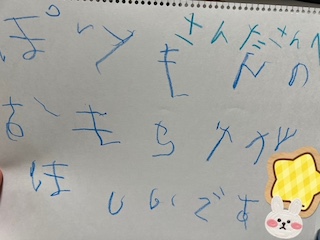 さんたさんへ
ぽけもんの
おもちゃが
ほしいです